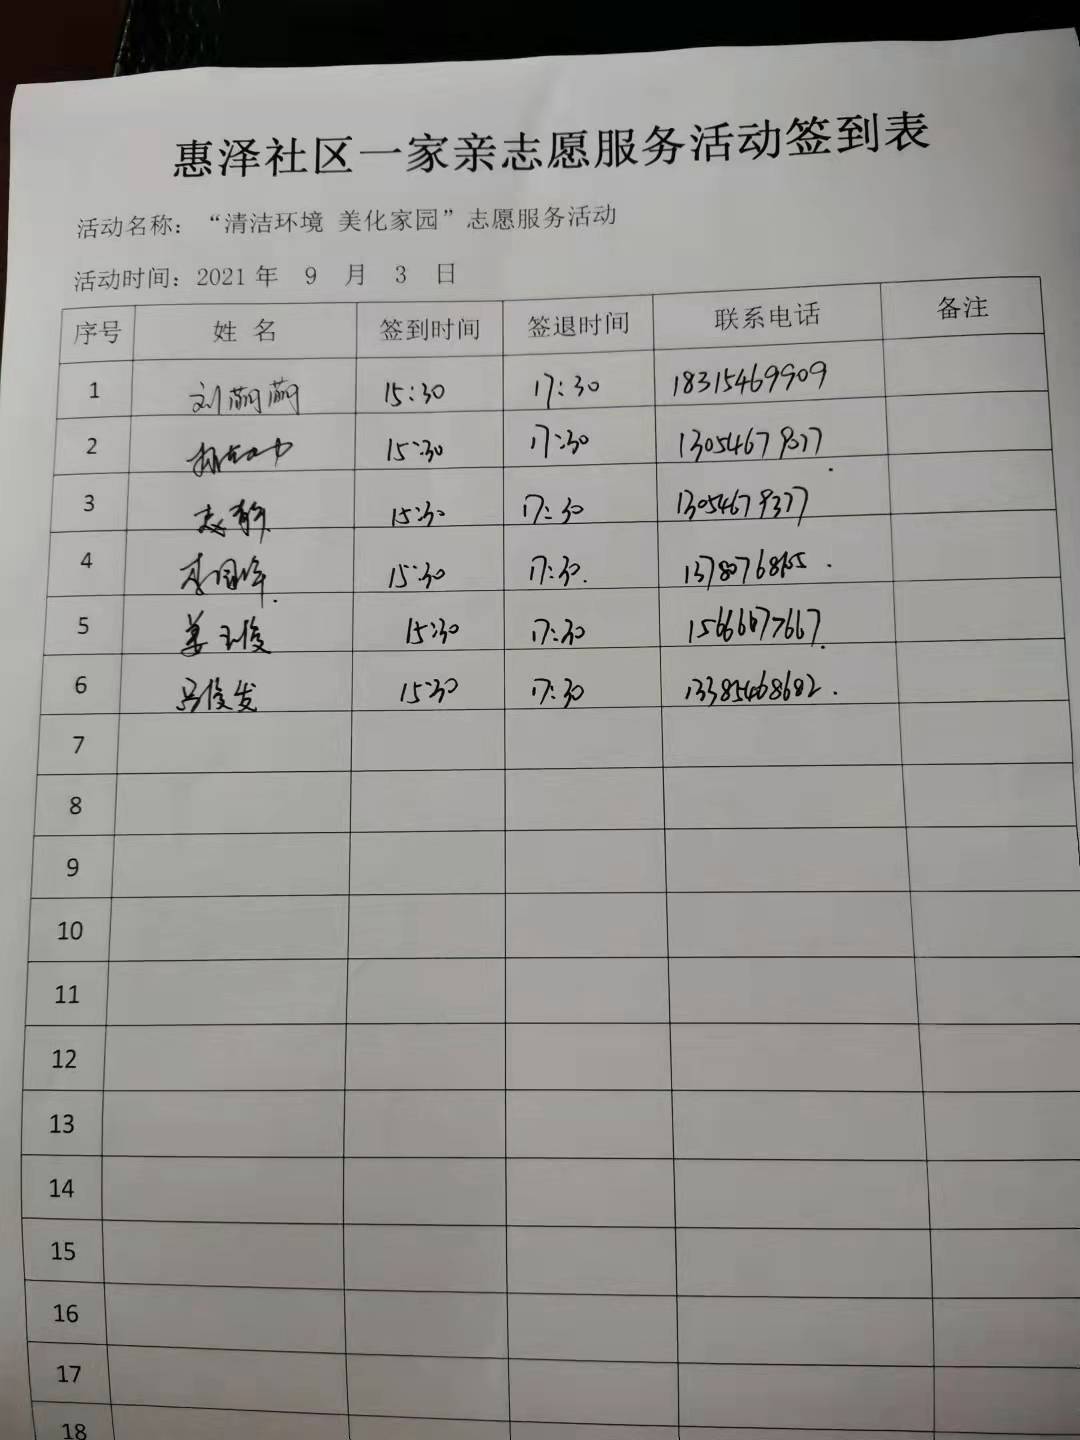 惠泽社区一家亲志愿服务活动签到表
活动名称：“清洁环境 美化家园”志愿服务活动
活动时间：2021 年 9 月 3 日
序号 姓 名 签到时间 签退时间 联系电话 备注
1 刘 15:30 17:30 18315469909
2 15:30 17:30
3 15:30 17:30
4 15:30 17:30.
5 姜玉俊 15:30 17:30
6 马俊发 15:30 17:30 13385468682.
7
8
9
10
11
12
13
14
15
16
17
18